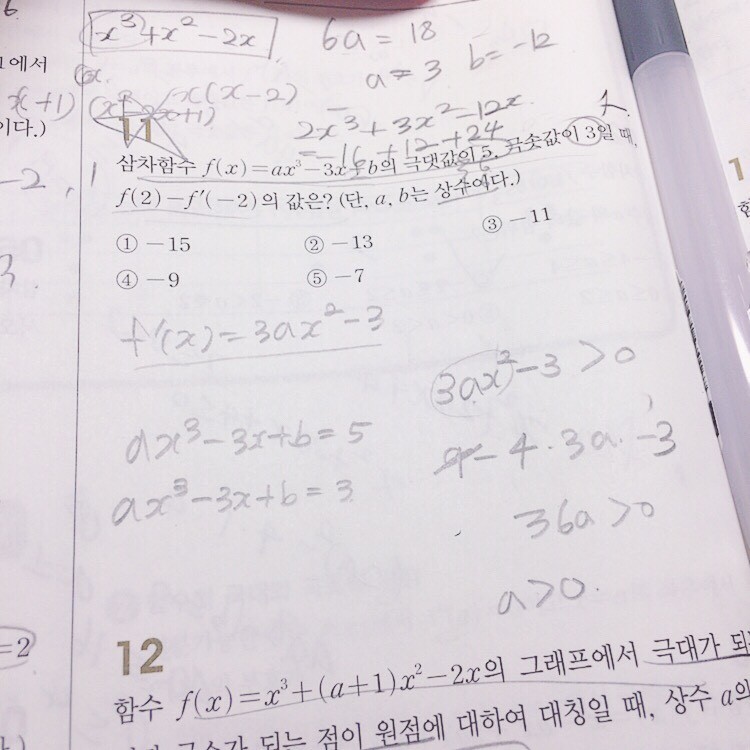 x³+x²-2x
6a = 18
a = 3
b = -12
x(x-2)
2x³+3x²-12x
= -16 +12 +24
에서
(x+1)
이다.)
-2, 1
11
삼차함수 f(x)=ax³-3x+b의 극댓값이 5, 극솟값이 3일 때,
f(2)-f′(-2)의 값은? (단, a, b는 상수이다.)
① -15
② -13
③ -11
④ -9
⑤ -7
f′(x) = 3ax²-3
3ax²-3 > 0
ax³-3x+b = 5
-4·3a·-3
ax³-3x+b = 3
36a > 0
a > 0.
=2
12
함수 f(x)=x³+(a+1)x²-2x의 그래프에서 극대가 되
극소가 되는 점이 원점에 대하여 대칭일 때, 상수 a의